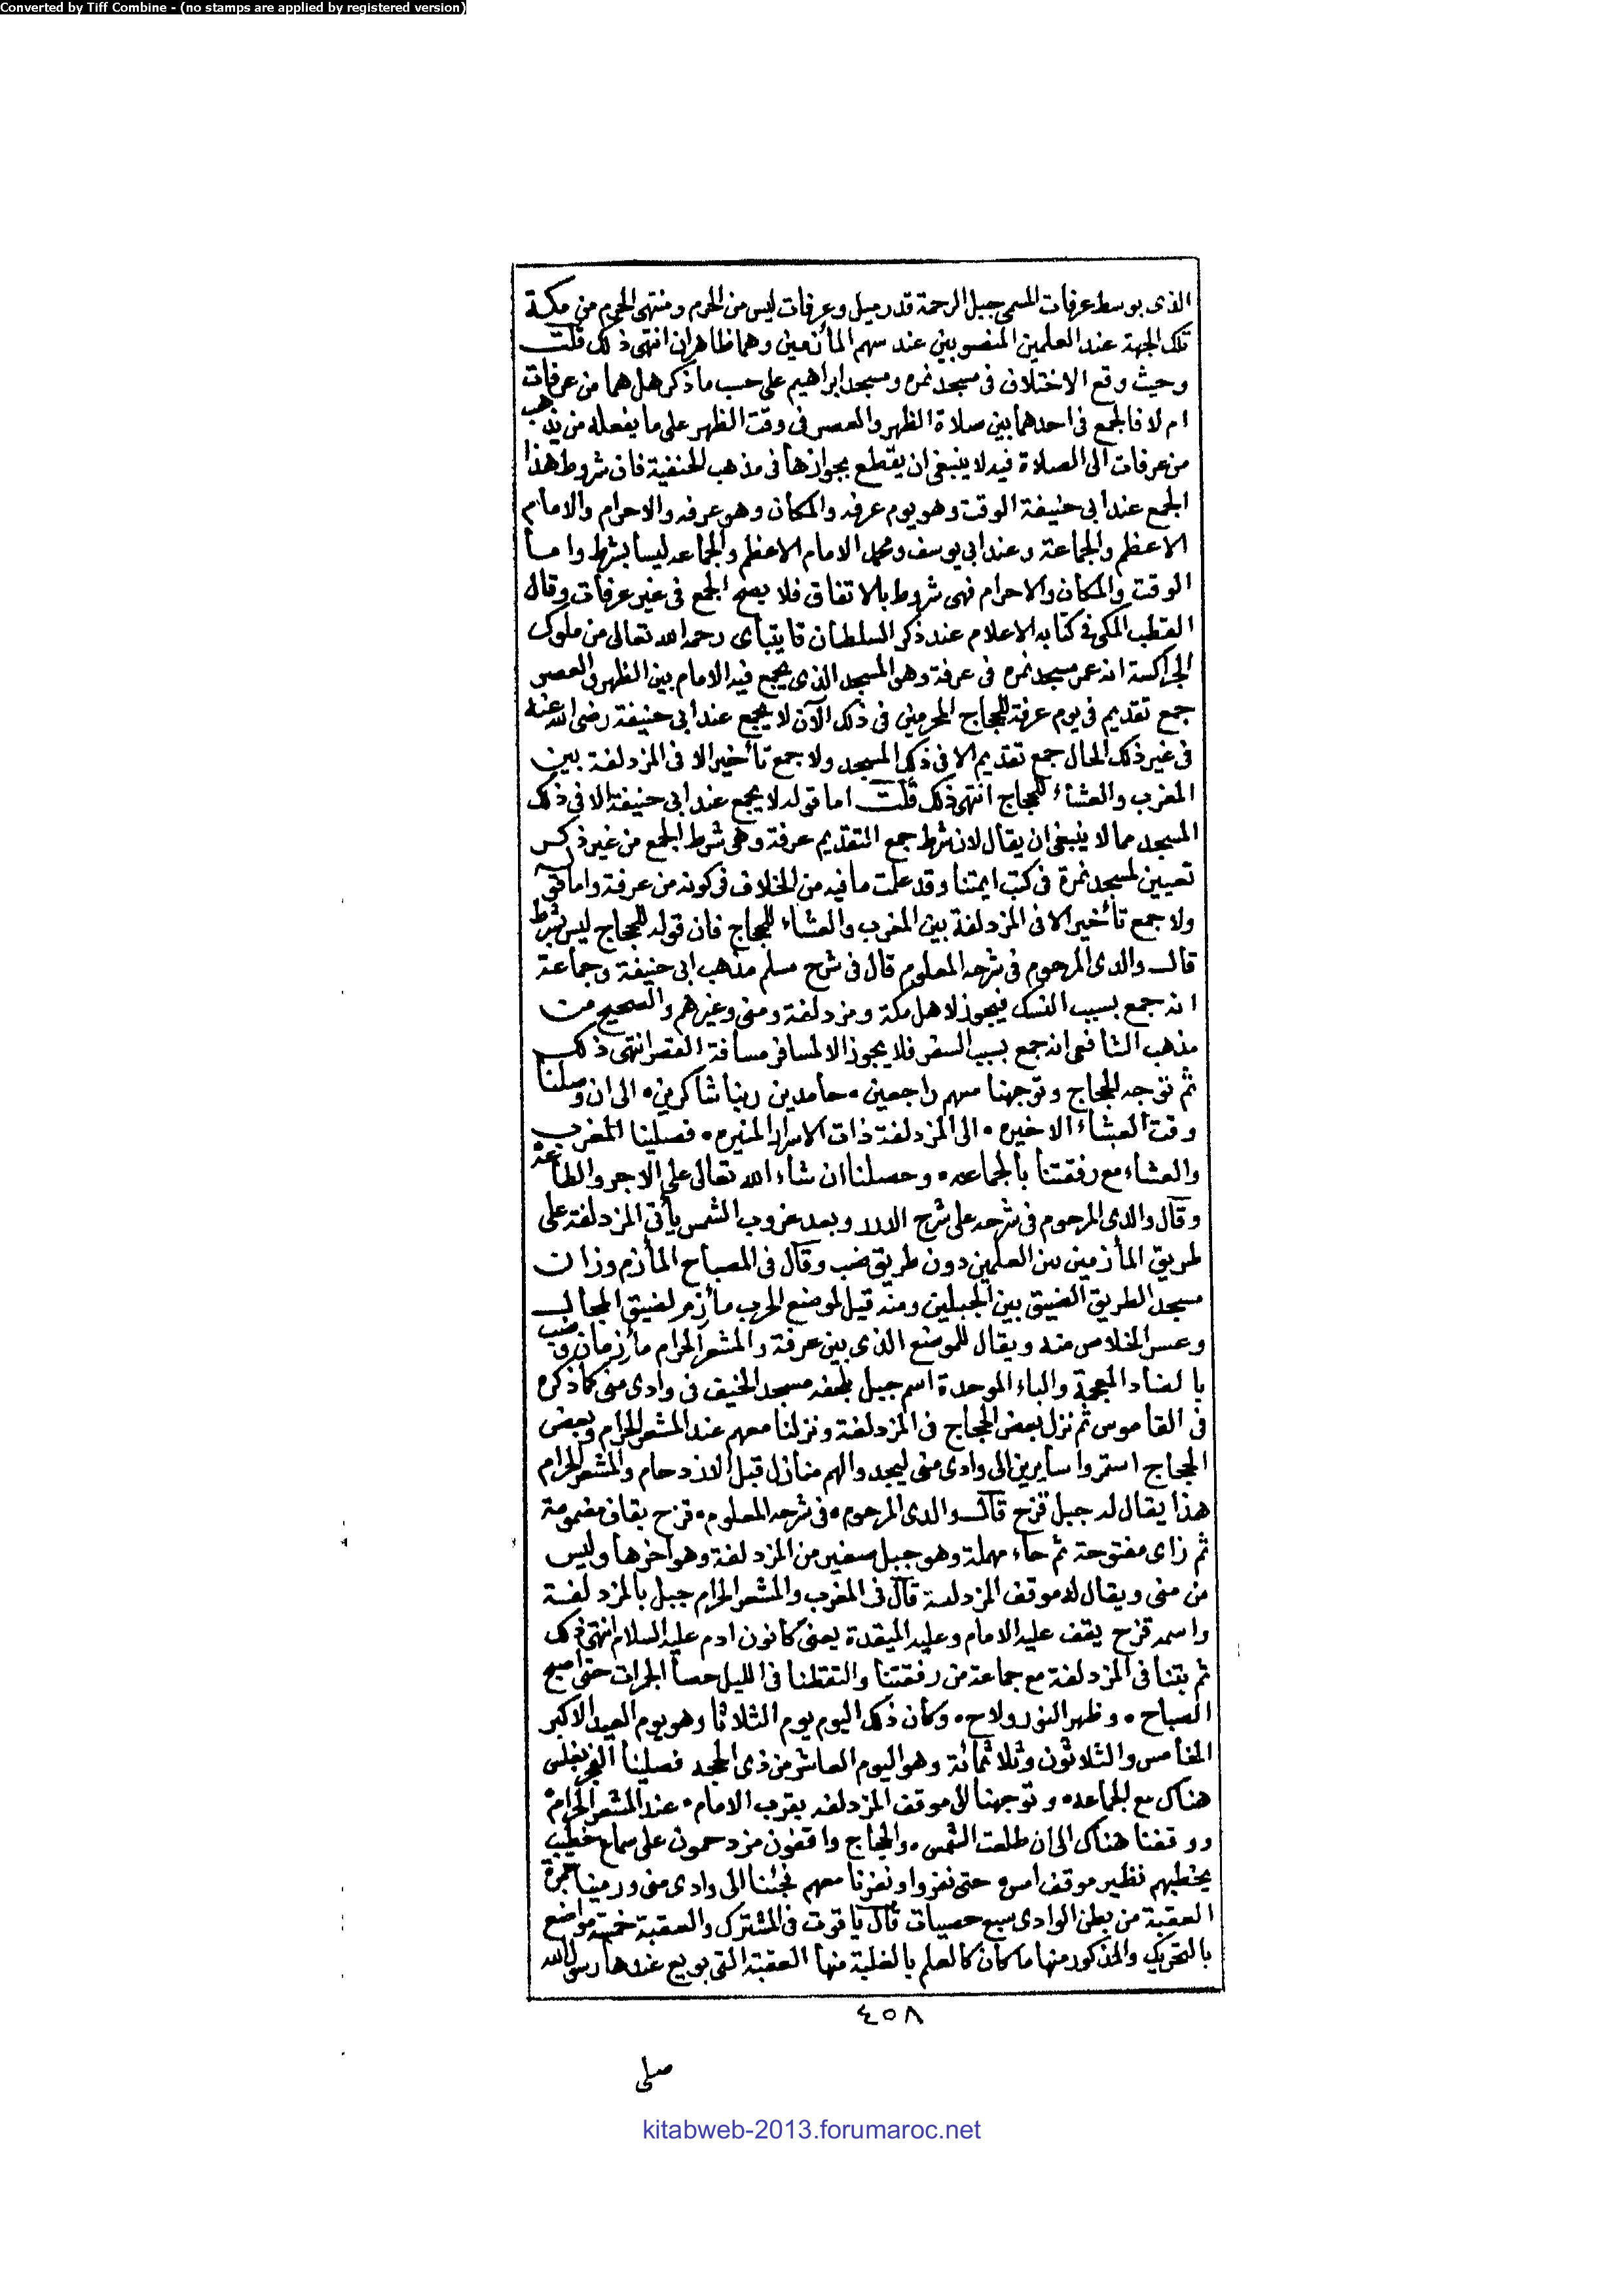 Converted by Tiff Combine - (no stamps are applied by registered version)
الذى بوسط عرفات المسمى جبل الرحمة قدر ميل وعرفات ليس من الحرم ومنتهى الحرم من مكة
تلك الجهة عند العلمين المنصوبين عند سهم المأزمين وهما ظاهران انتهى ذلك قلت
وحيث وقع الاختلاف فى مسجد نمره ومسجد ابراهيم على حسب ما ذكر هل هما من عرفات
ام لا فالجمع فى احدهما بين صلاة الظهر والعصر فى وقت الظهر على ما يفعله من يذهب
من عرفات الى الصلاة فيه لا ينبغى ان يقطع بجوازها فى مذهب الحنفية فان شروط هذا
الجمع عند ابى حنيفة الوقت وهو يوم عرفه والمكان وهو عرفه والاحرام والامام
الاعظم والجماعة وعند ابى يوسف ومحمد الامام الاعظم والجماعه ليسا بشرط واما
الوقت والمكان والاحرام فهى شروط بالاتفاق فلا يصح الجمع فى غير عرفات وقال
القطب المكى فى كتابه الاعلام عند ذكر السلطان قايتباى رحمه الله تعالى من ملوك
الجراكسة انه عمر مسجد نمره فى عرفة وهو المسجد الذى يجمع فيه الامام بين الظهر والعصر
جمع تقديم فى يوم عرفة للحجاج المحرمين فى ذلك الآن لا يجمع عند ابى حنيفة رضى الله عنه
فى غير ذلك الحال جمع تقديم الا فى ذلك المسجد ولا جمع تأخير الا فى المزدلفة بين
المغرب والعشاء للحجاج انتهى ذلك قلت اما قوله لا يجمع عند ابى حنيفة الا فى ذلك
المسجد مما لا ينبغى ان يقال لان شرط جمع التقديم عرفة وهى شرط الجمع من غير ذكر
تعيين لمسجد نمرة فى كتب ايمتنا وقد علمت ما فيه من الخلاف فى كونه من عرفة واما قوله
ولا جمع تأخير الا فى المزدلفة بين المغرب والعشاء للحجاج فان قوله للحجاج ليس بشرط
قال والدى المرحوم فى شرحه المعلوم قال فى شرح مسلم مذهب ابى حنيفة وجماعة
انه جمع بسبب النسك فيجوز لاهل مكة ومزدلفة ومنى وغيرهم والصحيح من
مذهب الشافعى انه جمع بسبب السفر فلا يجوز الا لمسافر مسافة القصر انتهى ذلك
ثم توجه الحجاج وتوجهنا معهم راجعين • حامدين ربنا شاكرين • الى ان وصلنا
وقت العشاء الاخيره • الى المزدلفة ذات الاسرار المنيره • فصلينا المغرب
والعشاء مع رفقتنا بالجماعه • وحصلنا ان شاء الله تعالى على الاجر والطاعة
وقال والدى المرحوم فى شرحه على شرح الدرر وبعد غروب الشمس يأتى المزدلفة على
طريق المأزمين بين العلمين دون طريق ضب وقال فى المصباح المأزم وزان
مسجد الطريق الضيق بين الجبلين ومنه قيل لموضع الحرب مأزم لضيق المجال
وعسر الخلاص منه ويقال للموضع الذى بين عرفة والمشعر الحرام مأزمان وضب
بالضاد المعجمة والباء الموحدة اسم جبل بلحفه مسجد الخيف فى وادى منى كما ذكره
فى القاموس ثم نزل بعض الحجاج فى المزدلفة ونزلنا معهم عند المشعر الحرام وبعض
الحجاج استمروا سايرين الى وادى منى ليجدوا لهم منازل قبل الازدحام والمشعر الحرام
هذا يقال له جبل قزح قال والدى المرحوم • فى شرحه المعلوم • قزح بقاف مضمومة
ثم زاى مفتوحة ثم حاء مهملة وهو جبل صغير من المزدلفة وهو آخرها وليس
من منى ويقال له موقف المزدلفة قال فى المغرب والمشعر الحرام جبل بالمزدلفة
واسمه قزح يقف عليه الامام وعليه الميقدة يعنى كانون ادم عليه السلام انتهى ذلك
ثم بتنا فى المزدلفة مع جماعة من رفقتنا والتقطنا فى الليل حصا الجمرات حتى اصبح
الصباح • وظهر النور ولاح • وكان ذلك اليوم يوم الثلاثا وهو يوم العيد الاكبر
الخامس والثلاثون وثلاثمائة وهو اليوم العاشر من ذى الحجه فصلينا الفجر بغلس
هناك مع الجماعه • وتوجهنا الى موقف المزدلفه بقرب الامام • عند المشعر الحرام •
ووقفنا هناك الى ان طلعت الشمس • والحجاج واقفون مزدحمون على سماع خطيب
يخطبهم نظير موقف امس • حتى نفروا ونفرنا معهم فجئنا الى وادى منى ورمينا جمرة
العقبة من بطن الوادى بسبع حصيات قال ياقوت فى المشترك والعقبة خمسة مواضع
بالتحريك والمذكور منها ما كان كالعلم بالغلبة منها العقبة التى بويع عندها رسول الله
٤٥٨
صلى
kitabweb-2013.forumaroc.net